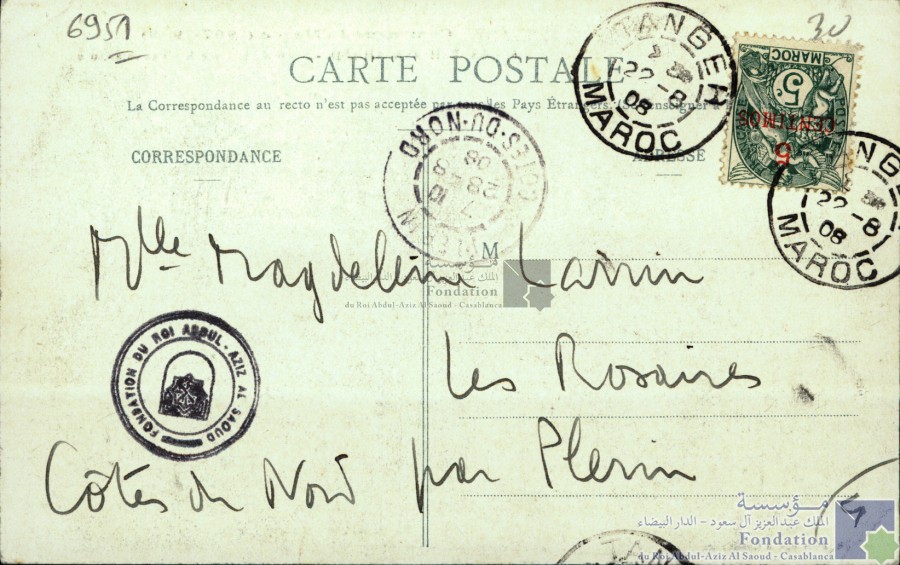 6951
30
CARTE POSTALE
La Correspondance au recto n'est pas acceptée par tous les Pays Étrangers. (Se renseigner à
CORRESPONDANCE
ADRESSE
TANGER
22-8
08
MAROC
MAROC
5c.
POSTE
5
CENTIMOS
TANGER
22-8
08
MAROC
CÔTES-DU-NORD
28
08
M
Mlle Magdeleine Larrin
مؤسسة
الملك عبد العزيز آل سعود - الدار البيضاء
Fondation
du Roi Abdul-Aziz Al Saoud - Casablanca
FONDATION DU ROI ABDUL-AZIZ AL SAOUD
Les Rosaires
Côtes du Nord par Plerin
مؤسسة
الملك عبد العزيز آل سعود - الدار البيضاء
Fondation
du Roi Abdul-Aziz Al Saoud - Casablanca